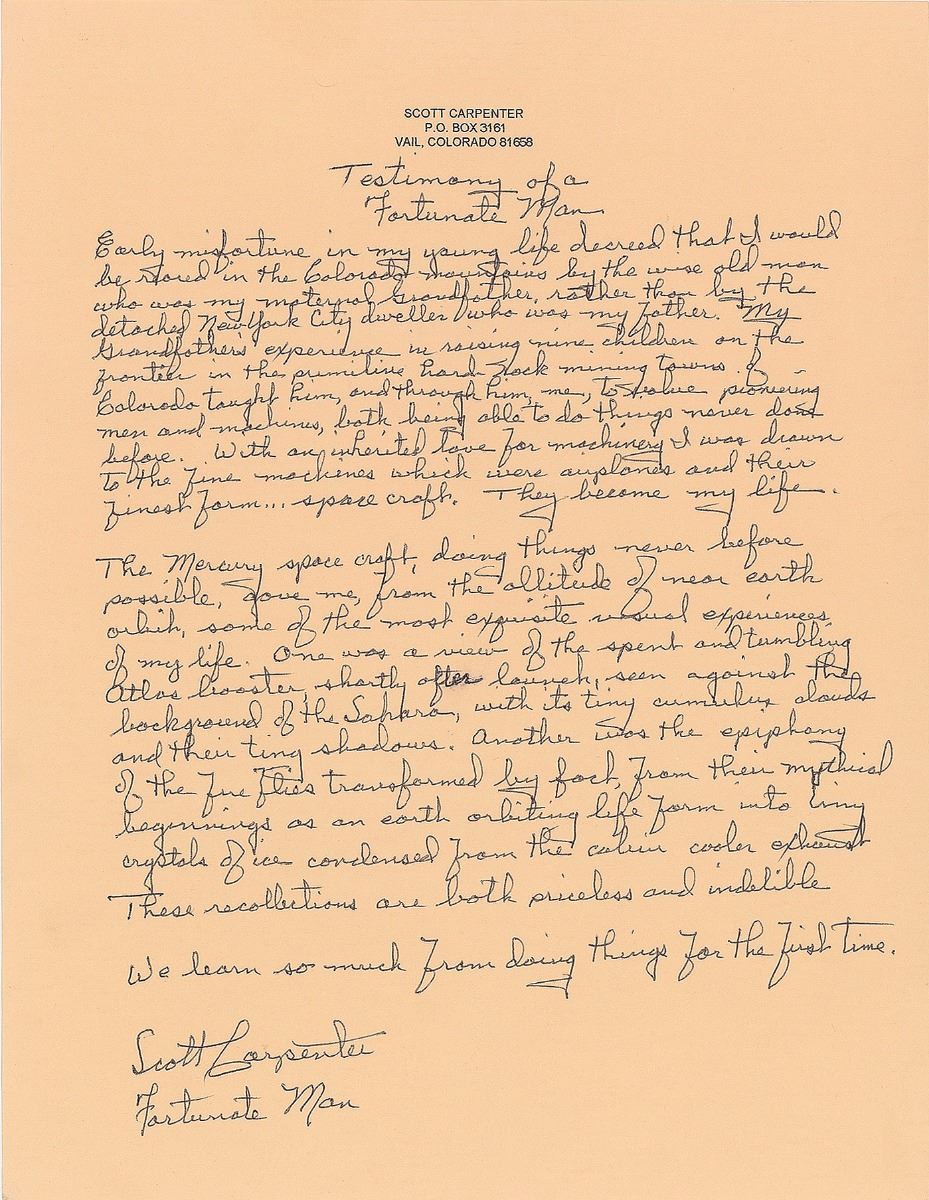 SCOTT CARPENTER
P.O. BOX 3161
VAIL, COLORADO 81658
Testimony of a
Fortunate Man.
Early misfortune in my young life decreed that I would
be reared in the Colorado mountains by the wise old man
who was my maternal Grandfather, rather than by the
detached New York City dweller who was my father. My
Grandfather's experience in raising nine children on the
frontier in the primitive hard-rock mining towns of
Colorado taught him, and through him, me, to value pioneering
men and machines, both being able to do things never done
before. With an inherited love for machinery I was drawn
to the fine machines which were airplanes and their
finest form... space craft. They became my life.
The Mercury space craft, doing things never before
possible, gave me, from the altitude of near earth
orbit, some of the most exquisite visual experiences
of my life. One was a view of the spent and tumbling
Atlas booster, shortly after launch, seen against the
background of the Sahara, with its tiny cumulus clouds
and their tiny shadows. Another was the epiphany
of the fire flies transformed by fact, from their mythical
beginnings as an earth orbiting life form into tiny
crystals of ice condensed from the cabin cooler exhaust
These recollections are both priceless and indelible
We learn so much from doing things for the first time.
Scott Carpenter
Fortunate Man